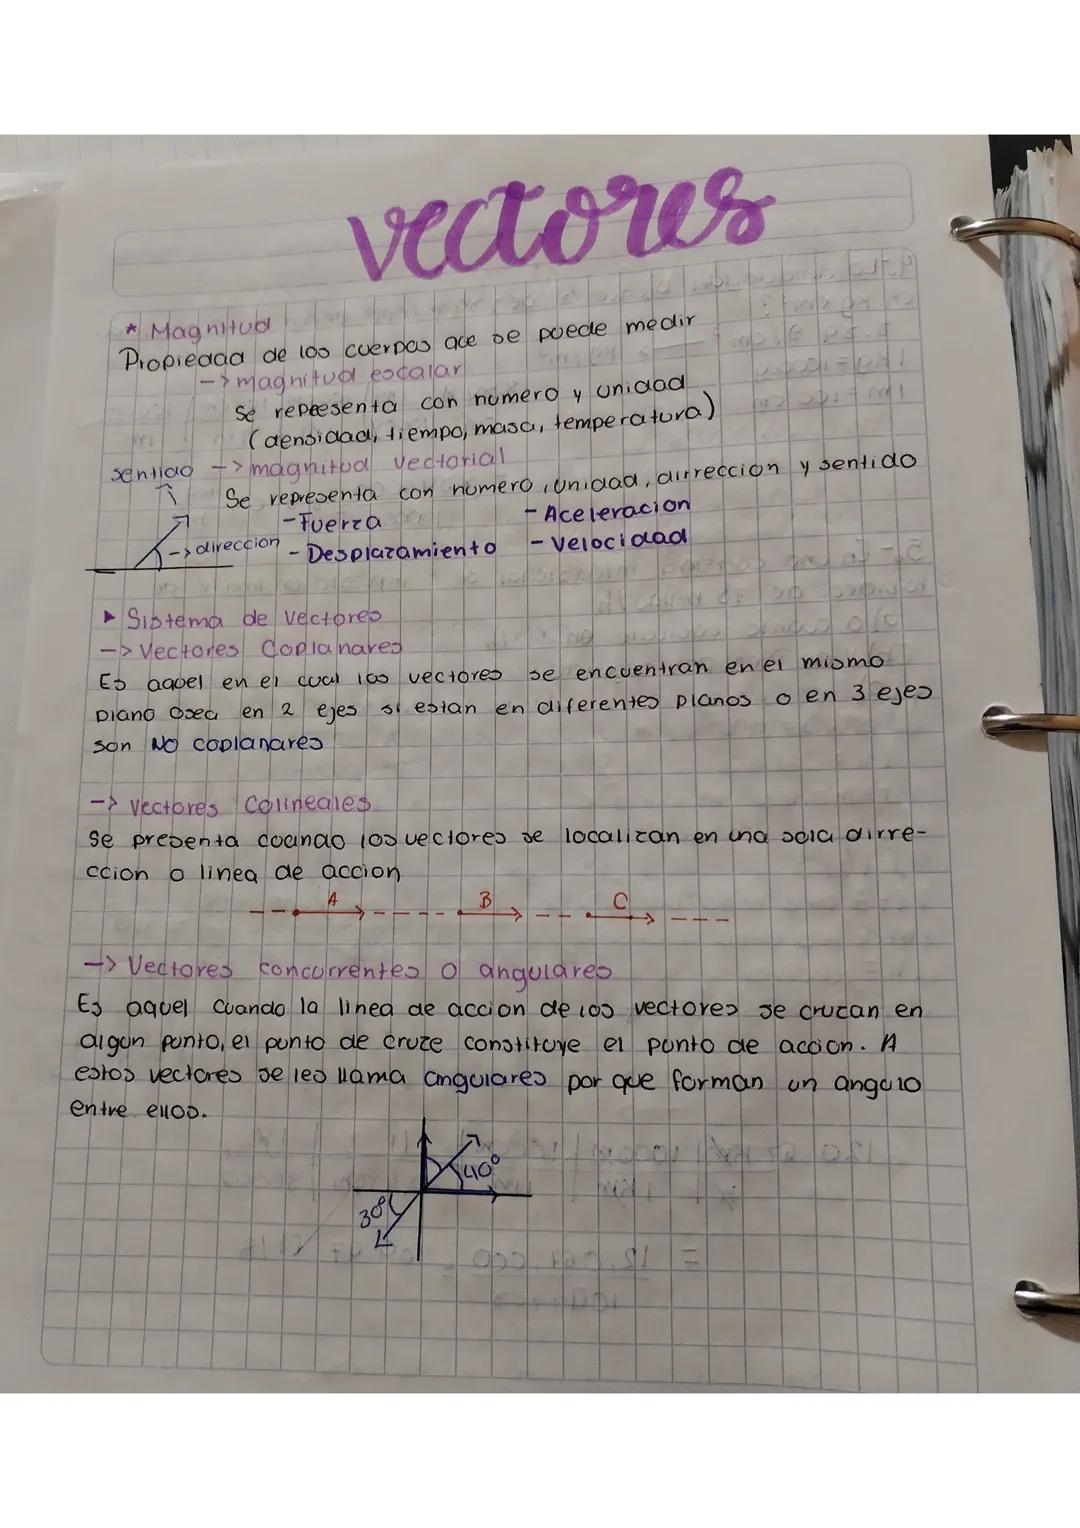 vectores
* Magnitud
Propiedad de los cuerpos que se puede medir
-> magnitud escalar
Se representa con numero y unidad
(densidad, tiempo, masa, temperatura)
sentido -> magnitud vectorial
Se representa con numero, unidad, dirreccion y sentido
-Fuerza - Aceleracion
-> direccion - Desplazamiento - Velocidad
▸ Sistema de vectores
-> Vectores Coplanares
Es aquel en el cual los vectores se encuentran en el mismo
plano osea en 2 ejes si estan en diferentes planos o en 3 ejes
son NO coplanares
-> Vectores Colineales
Se presenta cuando los vectores se localizan en una sola dirre-
ccion o linea de accion
A B C
-> Vectores concurrentes o angulares
Es aquel cuando la linea de accion de los vectores se cruzan en
algun punto, el punto de cruze constituye el punto de accion. A
estos vectores se les llama angulares por que forman un angulo
entre ellos.
40°
38